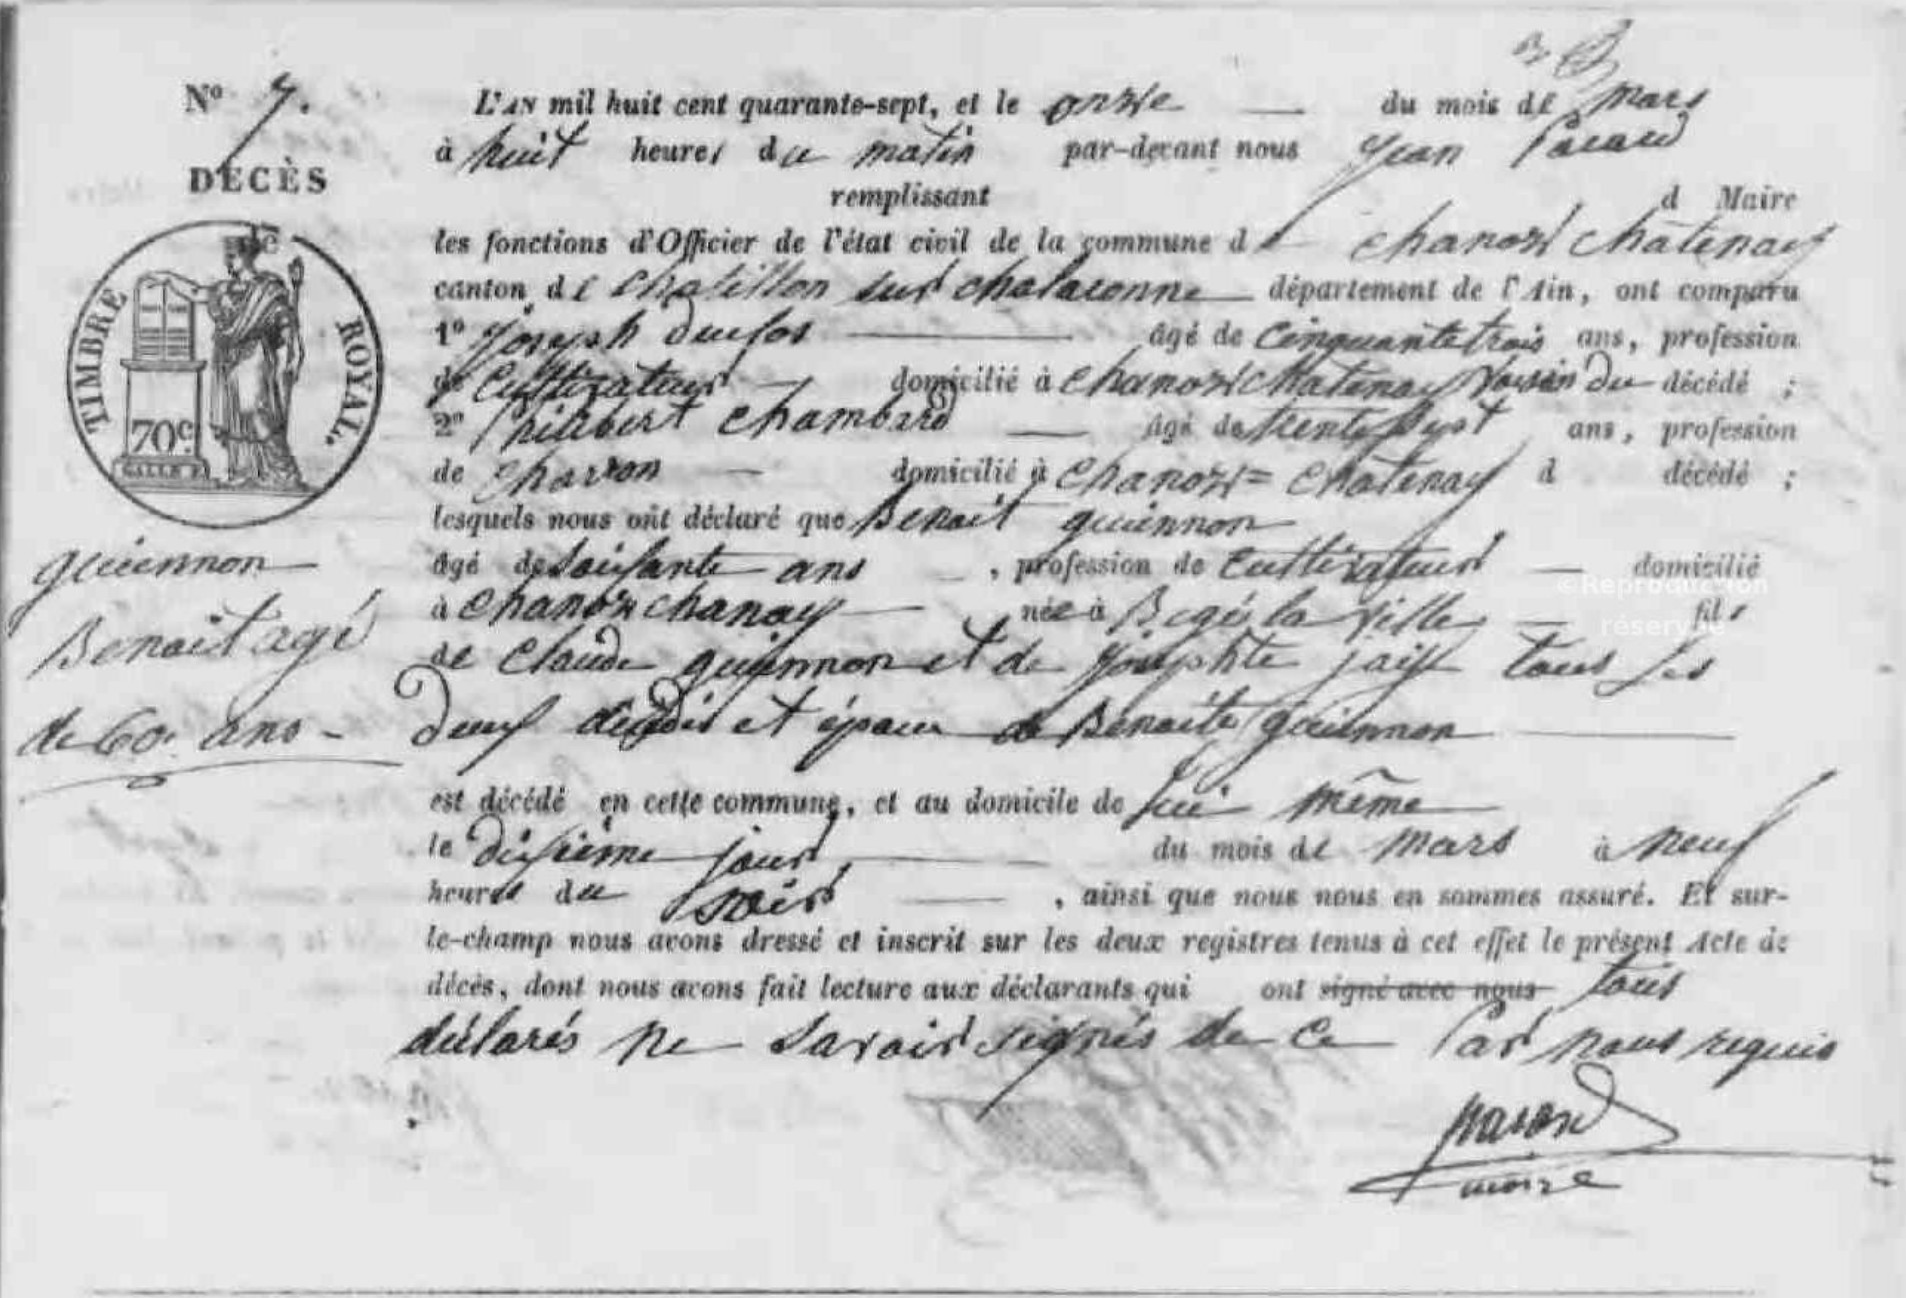 N° 7.
DÉCÈS
TIMBRE ROYAL.
70c.
guiennon
Benoit agé
de 60. ans -
L'AN mil huit cent quarante-sept, et le onzie du mois de mars
à huit heures du matin par-devant nous Jean
remplissant d Maire
les fonctions d'Officier de l'état civil de la commune de chanozt chatenay
canton de chatillon sur chalaronne département de l'Ain, ont comparu
1° joseph dufos âgé de cinquante trois ans, profession
de Cultivateur domicilié à chanozt chatenay voisin du décédé ;
2° Philibert chambard âgé de trente sept ans, profession
de charron domicilié à chanozt = chatenay d décédé ;
lesquels nous ont déclaré que Benoit guiennon
âgé de soixante ans , profession de cultivateur domicilié
à chanozt chanay née à Bagé la ville fils
de claude guiennon et de josephte jaiy tous les
deux décédés et époux de Benoite guiennon
est décédé en cette commune, et au domicile de lui même
le dixième jour du mois de mars à neuf
heures du soir , ainsi que nous nous en sommes assuré. Et sur-
le-champ nous avons dressé et inscrit sur les deux registres tenus à cet effet le présent Acte de
décès, dont nous avons fait lecture aux déclarants qui ont signé avec nous tous
déclarés ne savoir signés de ce Par nous requis
maire
©Reproduction
réservée